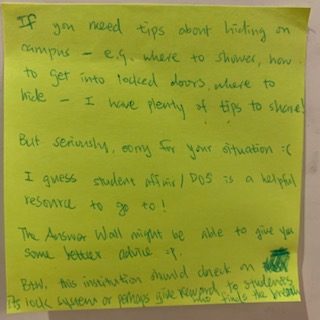 If you need tips about hiding on
campus – e.g. where to shower, how
to get into locked doors, where to
hide – I have plenty of tips to share!
But seriously, sorry for your situation :(
I guess student affair/DOS is a helpful
resource to go to!
The Answer Wall might be able to give you
some better advice :p.
Btw, this institution should check on
its lock system or perhaps give reward to students
who finds the breach